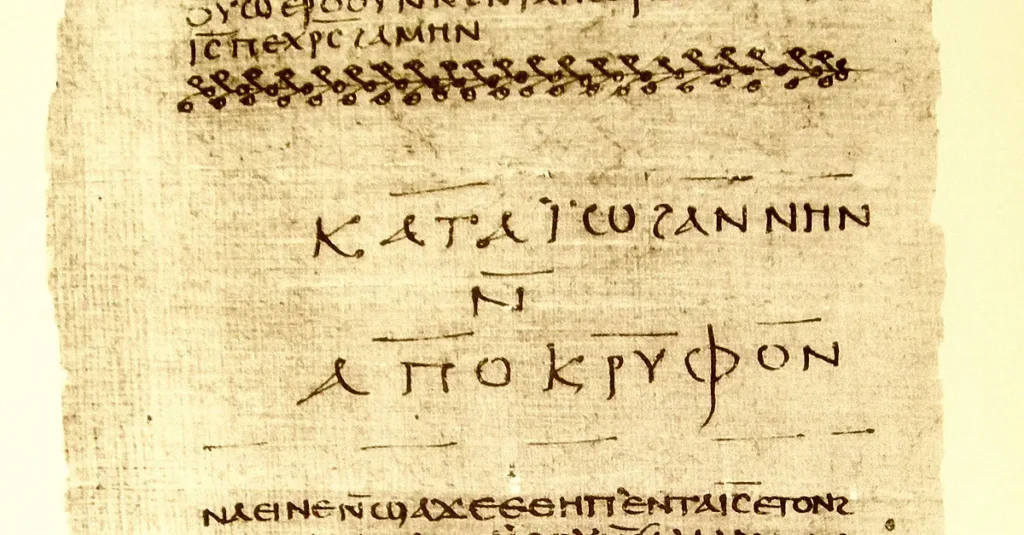 ⲓ̅ⲥ̅ⲡⲉⲭⲣ̅ⲥ̅ϩⲁⲙⲏⲛ
ⲕⲁⲧⲁⲓ̈ⲱϩⲁⲛⲛⲏⲛ
ⲛ̅
ⲁⲡⲟⲕⲣⲩⲫⲟⲛ
ⲛⲁⲉⲓⲛⲉⲛ̅ϣⲁϫⲉⲉⲑⲏⲡʼⲉⲛⲧⲁⲓ̅ⲥ̅ⲉⲧⲟⲛϩ